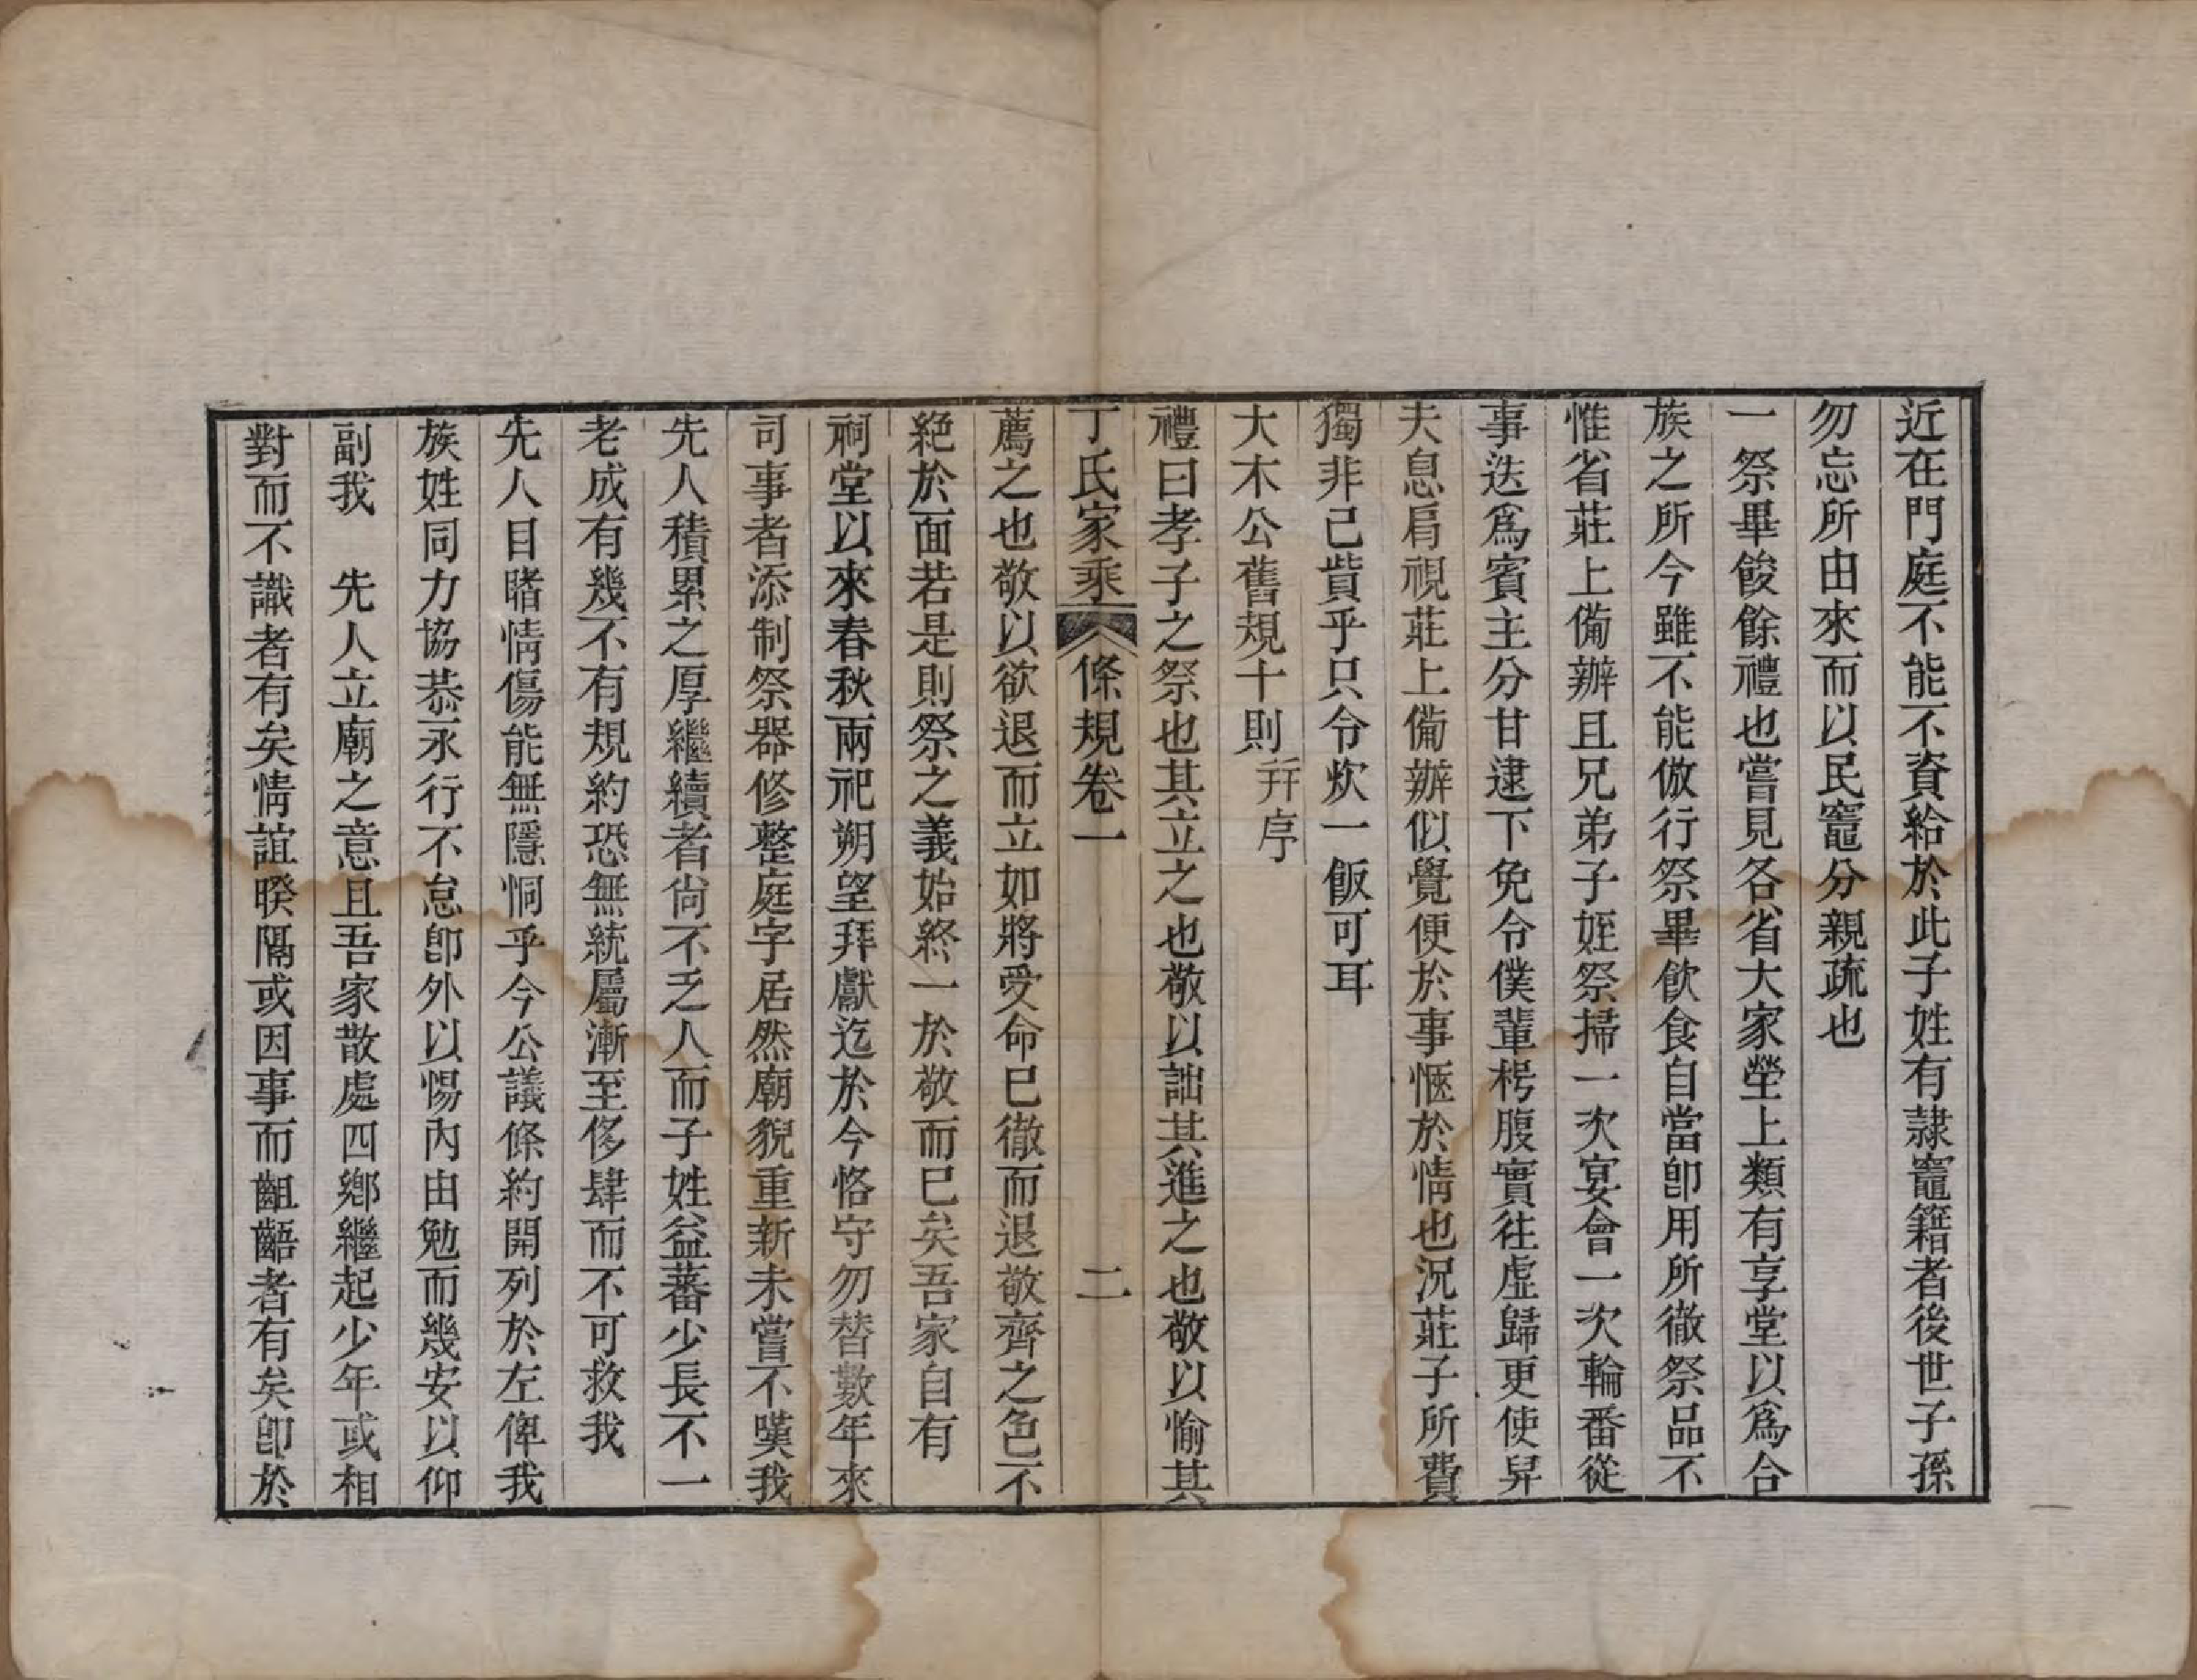 近在門庭不能不資給於此子姓有隷竈籍者後世子孫
勿忘所由來而以民竈分親疏也
一祭畢餕餘禮也嘗見各省大家塋上類有享堂以爲合
族之所今雖不能倣行祭畢飲食自當卽用所徹祭品不
惟省莊上備辦且兄弟子姪祭掃一次宴會一次輪番從
事迭爲賓主分甘逮下免令僕輩枵腹實往虛歸更使舁
夫息肩視莊上備辦似覺便於事愜於情也況莊子所費
獨非己貲乎只令炊一飯可耳
大木公舊規十則幷序
禮曰孝子之祭也其立之也敬以詘其進之也敬以愉其
丁氏家乘 條規卷一 二
薦之也敬以欲退而立如將受命已徹而退敬齊之色不
絕於面若是則祭之義始終一於敬而已矣吾家自有
祠堂以來春秋兩祀朔望拜獻迄於今恪守勿替數年來
司事者添制祭器修整庭宇居然廟貌重新未嘗不嘆我
先人積累之厚繼續者尙不乏人而子姓益蕃少長不一
老成有幾不有規約恐無統屬漸至侈肆而不可救我
先人目睹情傷能無隱恫乎今公議條約開列於左俾我
族姓同力協恭永行不怠卽外以惕內由勉而幾安以仰
副我 先人立廟之意且吾家散處四鄉繼起少年或相
對而不識者有矣情誼暌隔或因事而齟齬者有矣卽於